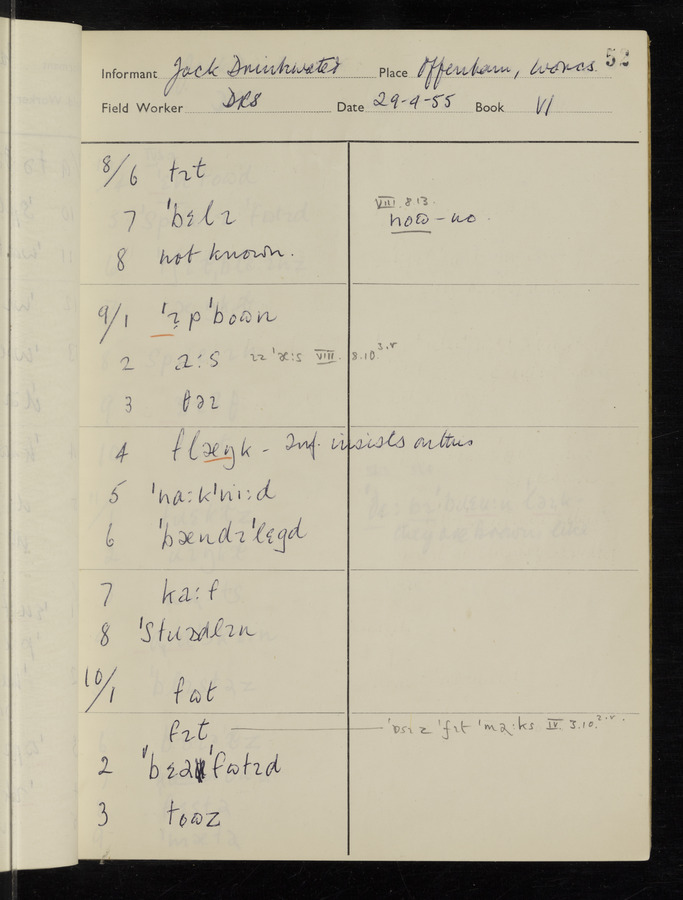 52
Informant Jack Drinkwater Place Offenham, Worcs.
Field Worker DRS Date 29-4-55 Book VI
8/6 tɪt
VIII.8.13.
7 ˈbɛlɪ
noʊ - no.
8 not known.
9/1 ˈɪpˈboʊn
2 aːs ɪz ˈæːs VIII. 8.10.
3 θəɪ
4 flæŋk - Inf. insists on this
5 ˈnaːkˈniːd
6 ˈbændɪˈlɛgd
7 kaːf
8 ˈʃtuədlɪn
10/1 fʊt
fɪt ˈfɪt ˈmaːks IV. 3.10.
2 ˈbɛəˈfʊtɪd
3 toʊz